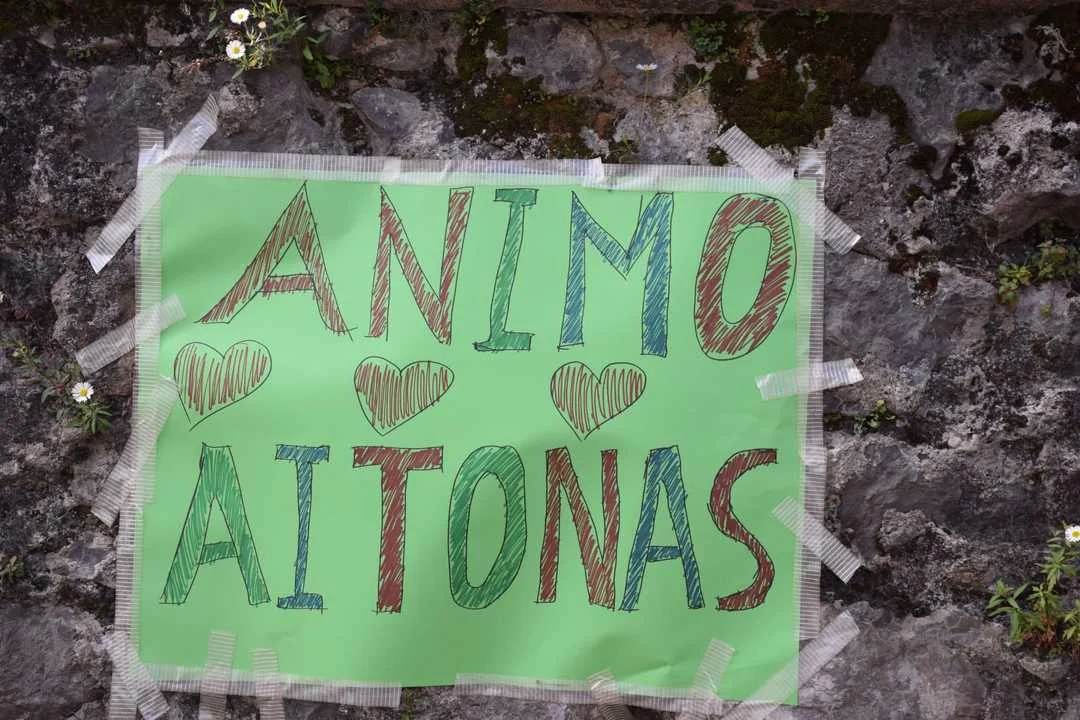 ANIMO
AITONAS